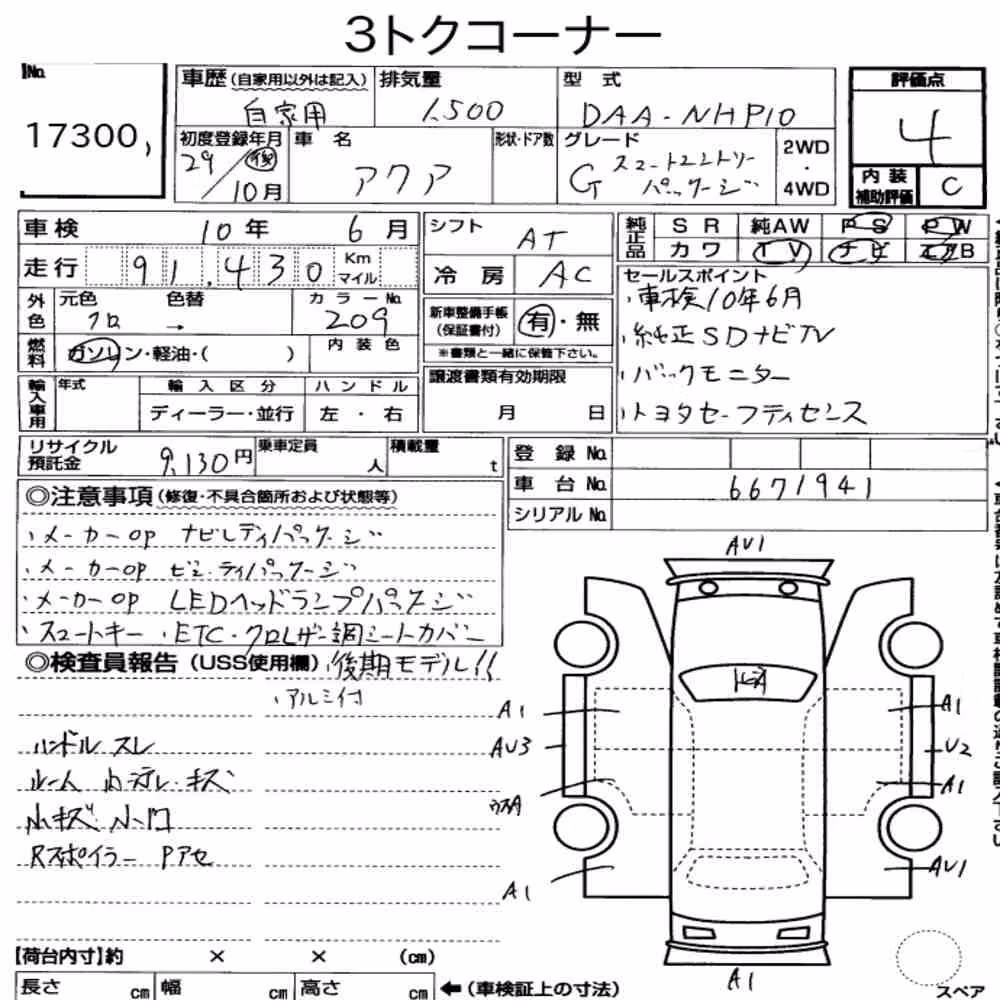 3トクコーナー
No.
17300,
車歴(自家用以外は記入)
自家用
排気量
1.500
型 式
DAA-NHP10
評価点
4
初度登録年月
29/後
10月
車 名
アクア
形状・ドア数
グレード
G スマートエントリー
パッケージ
2WD
・
4WD
内 装
補助評価
C
車検 10年 6月
走行 91,430 Km
マイル
シフト AT
冷 房 AC
純正品
SR 純AW PS PW
カワ TV ナビ エアB
セールスポイント
・車検10年6月
・純正SDナビTV
・バックモニター
・トヨタセーフティセンス
外色
元色 色替 カラーNo.
クロ → 209
新車整備手帳
(保証書付)
有・無
※書類と一緒に保管下さい。
燃料
ガソリン・軽油・( )
内装色
輸入車用
年式 輸入区分 ハンドル
ディーラー・並行 左・右
譲渡書類有効期限
月 日
リサイクル
預託金
9,130円
乗車定員
人
積載量
t
登 録 No.
車 台 No. 6671941
シリアル No.
◎注意事項(修復・不具合箇所および状態等)
・メーカーop ナビレディパッケージ
・メーカーop ビューティパッケージ
・メーカーop LEDヘッドランプパッケージ
・スマートキー ・ETC・クロレザー調シートカバー
◎検査員報告(USS使用欄)
・後期モデル!!
・アルミ付
ハンドル スレ
小キズ 小凹
Rスポイラー Pアセ
AU1
A1
AU3
A1
A1
U2
A1
AU1
A1
【荷台内寸】約 × × (cm)
長さ cm 幅 cm 高さ cm
←(車検証上の寸法)
スペア